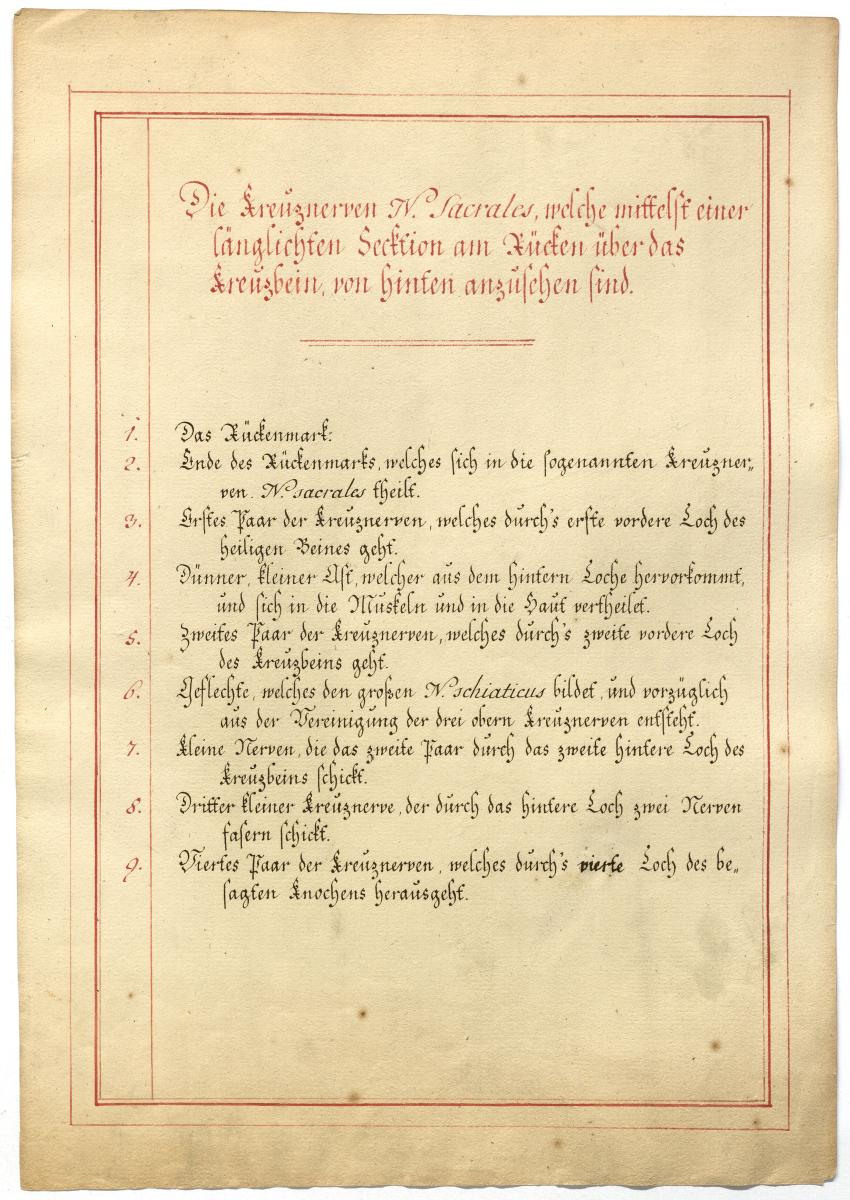 Die Kreuznerven N. Sacrales, welche mittelst einer
länglichten Secktion am Rücken über das
Kreuzbein, von hinten anzusehen sind.
1. Das Rückenmark.
2. Ende des Rückenmarks, welches sich in die sogenannten Kreuzner„
ven. N. sacrales theilt.
3. Erstes Paar der Kreuznerven, welches durch's erste vordere Loch des
heiligen Beines geht.
4. Dünner, kleiner Ast, welcher aus dem hintern Loche hervorkommt,
und sich in die Muskeln und in die Haut vertheilet.
5. Zweites Paar der Kreuznerven, welches durch's zweite vordere Loch
des Kreuzbeins geht.
6. Geflechte, welches den großen N. schiaticus bildet, und vorzüglich
aus der Vereinigung der drei obern Kreuznerven entsteht.
7. Kleine Nerven, die das zweite Paar durch das zweite hintere Loch des
Kreuzbeins schickt.
8. Dritter kleiner Kreuznerve, der durch das hintere Loch zwei Nerven
fasern schickt.
9. Viertes Paar der Kreuznerven, welches durch's vierte Loch des be„
sagten Knochens herausgeht.